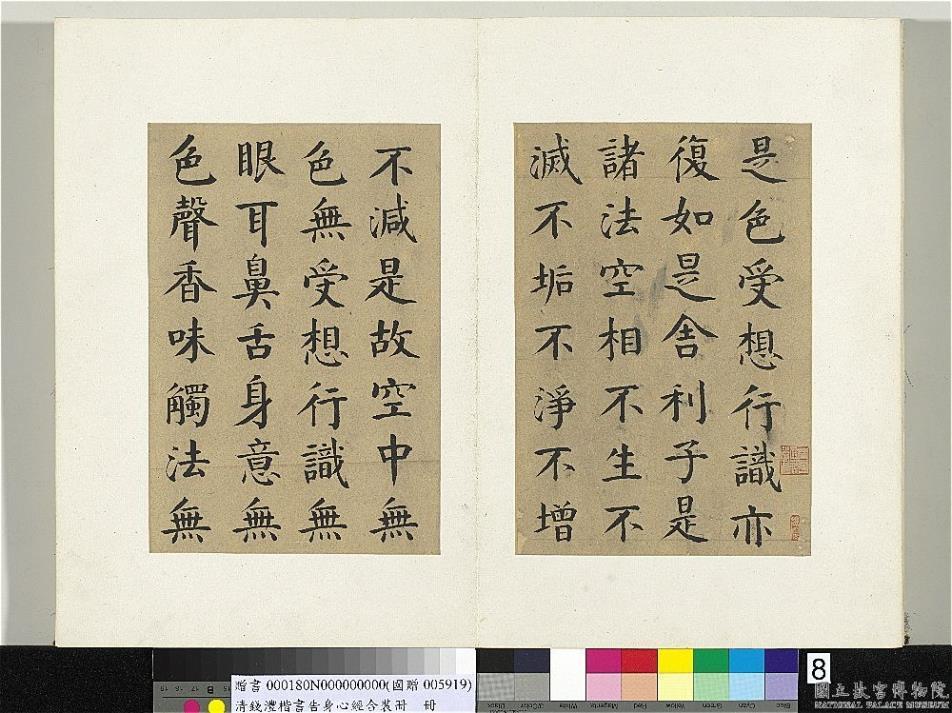 是色受想行識亦
復如是舍利子是
諸法空相不生不
滅不垢不淨不增
不減是故空中無
色無受想行識無
眼耳鼻舌身意無
色聲香味觸法無
贈書 000180N000000000(國贈 005919)
清錢澧楷書告身心經合裝冊 冊
8
國立故宮博物院
NATIONAL PALACE MUSEUM